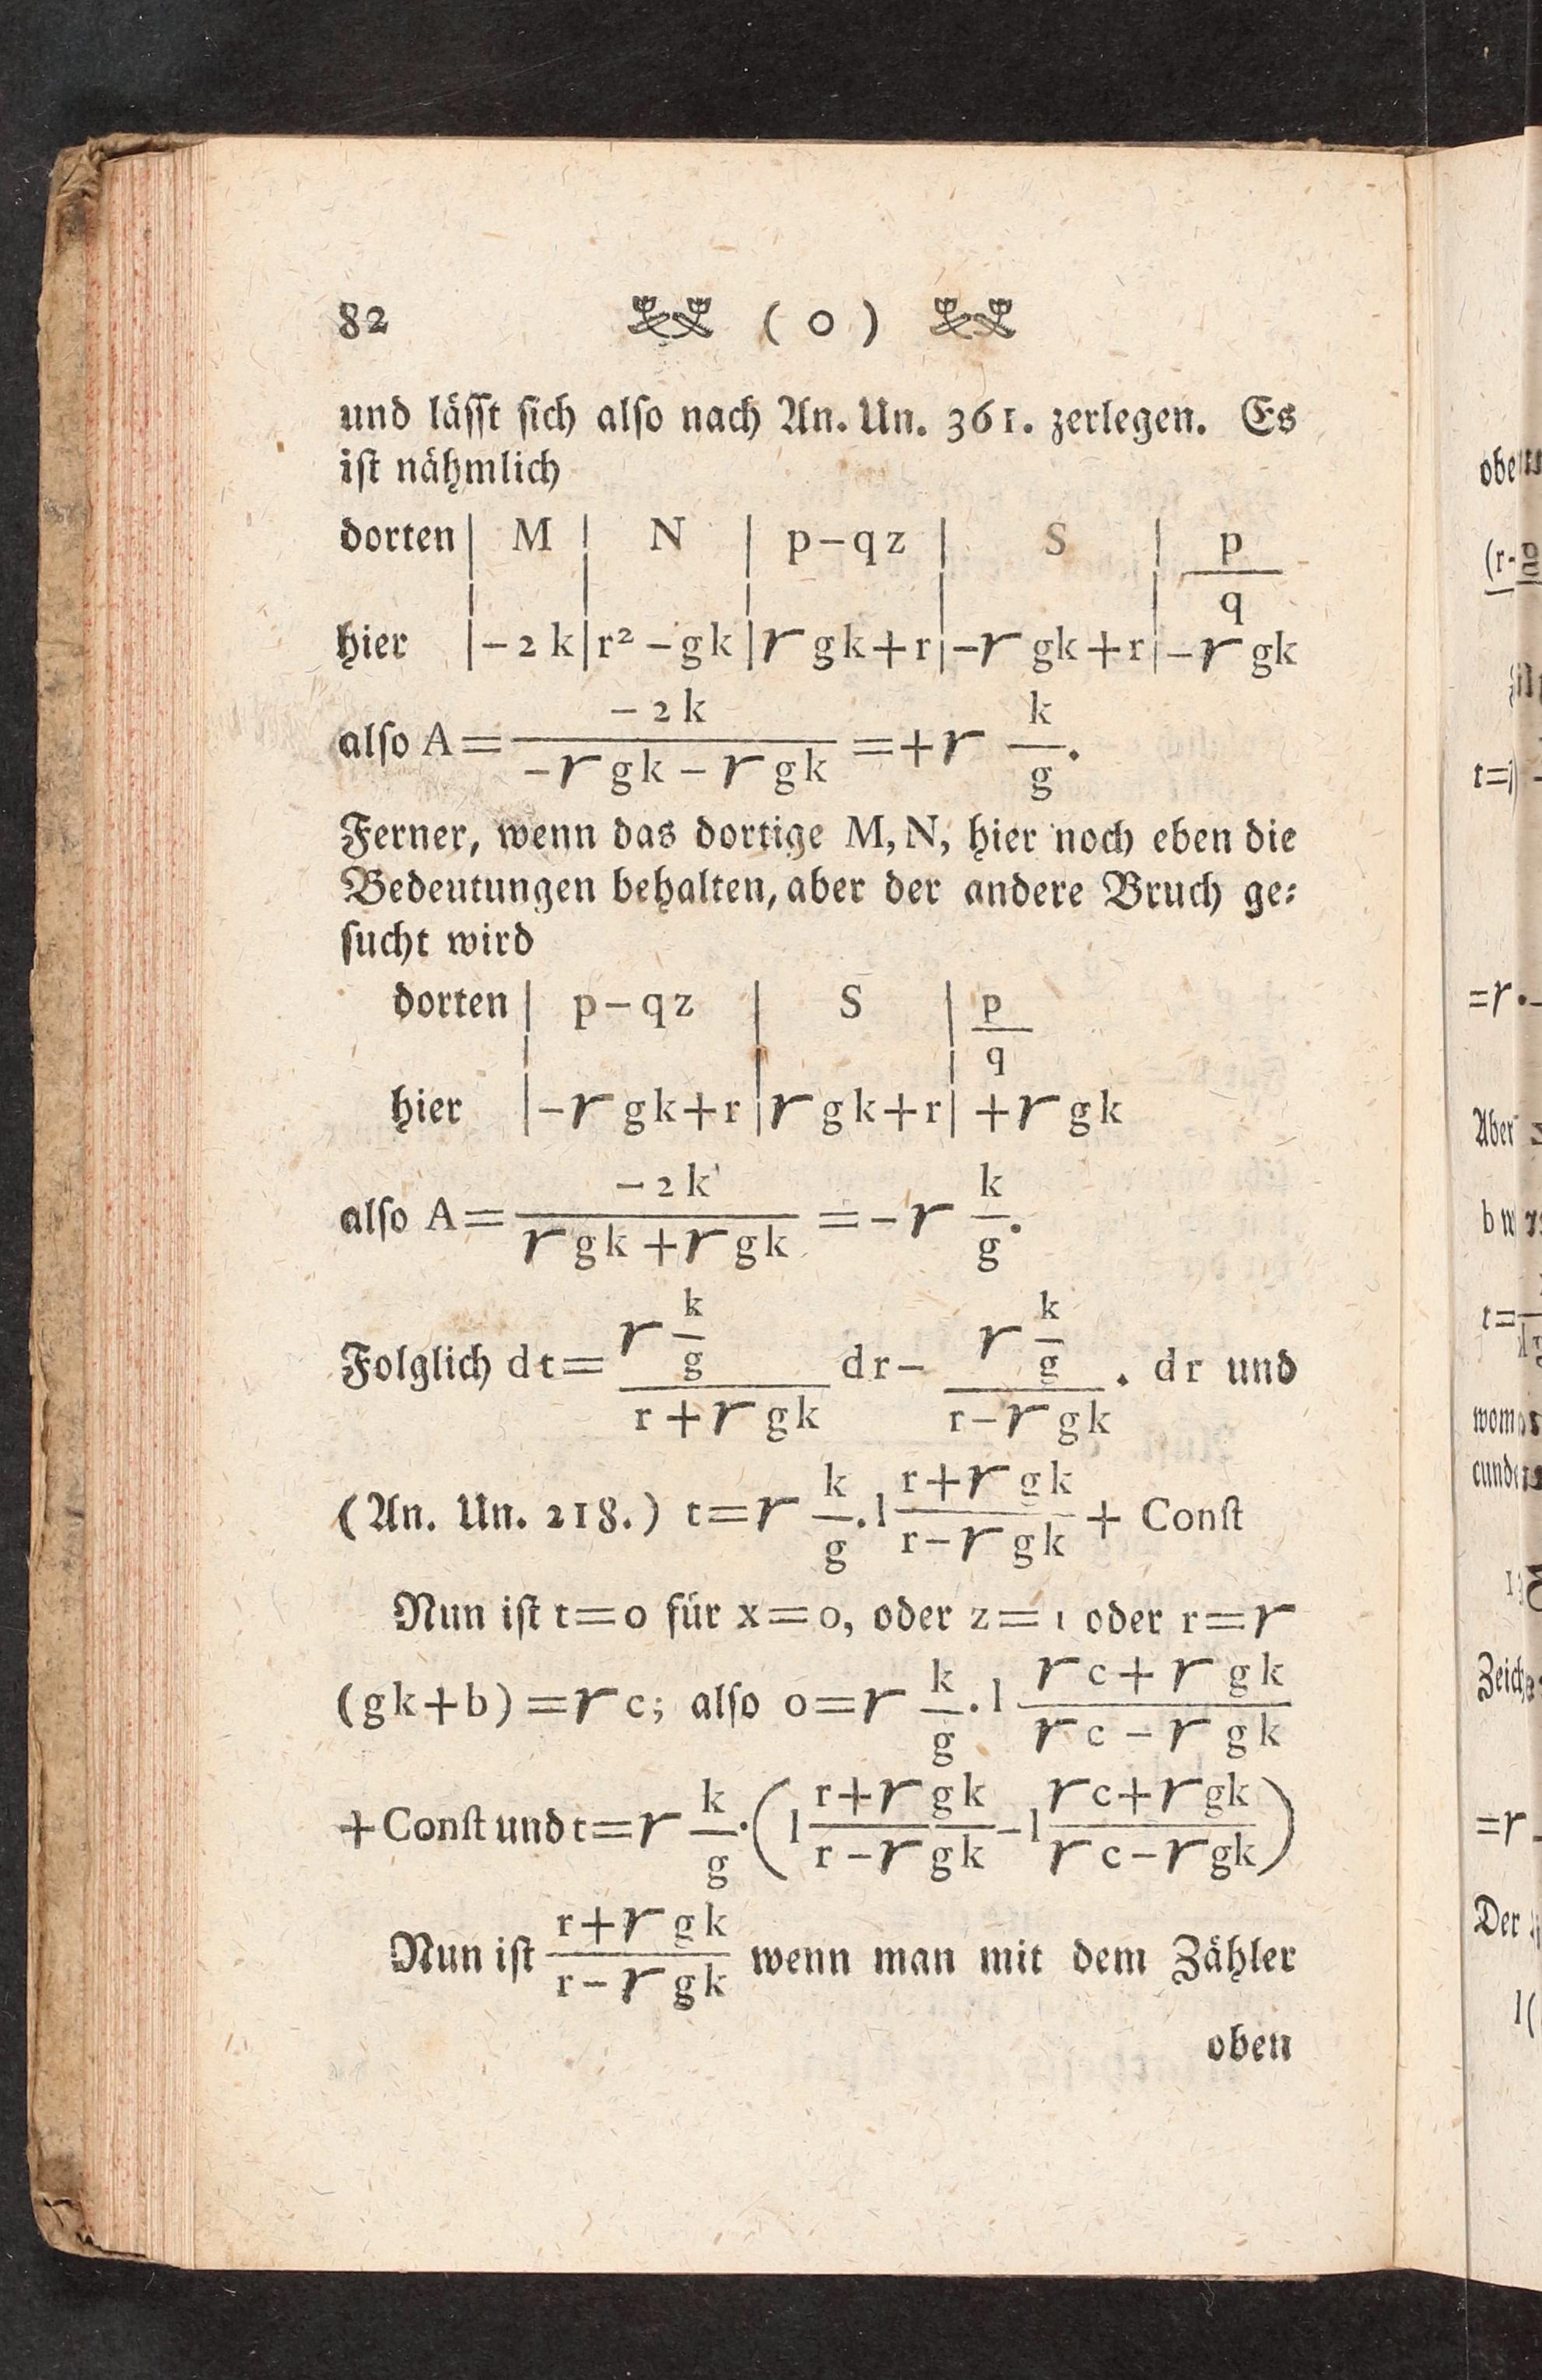 82 ( o )
und lässt sich also nach An. Un. 361. zerlegen. Es
ist nähmlich
dorten | M | N | p-qz | S | p/q
hier | -2k | r² - gk | √ gk+r | -√ gk+r | -√ gk
also A = -2k / (-√ gk - √ gk) = +√ k/g.
Ferner, wenn das dortige M, N, hier noch eben die
Bedeutungen behalten, aber der andere Bruch ge-
sucht wird
dorten | p-qz | S | p/q
hier | -√ gk+r | √ gk+r | +√ gk
also A = -2k / (√ gk + √ gk) = -√ k/g.
Folglich dt = (√ k/g) / (r+√ gk) dr - (√ k/g) / (r-√ gk) . dr und
(An. Un. 218.) t = √ k/g . l (r+√ gk) / (r-√ gk) + Const
Nun ist t=0 für x=0, oder z=1 oder r=√
(gk+b) = √ c; also 0 = √ k/g . l (√ c+√ gk) / (√ c-√ gk)
+ Const und t = √ k/g . ( l (r+√ gk) / (r-√ gk) - l (√ c+√ gk) / (√ c-√ gk) )
Nun ist (r+√ gk) / (r-√ gk) wenn man mit dem Zähler
oben